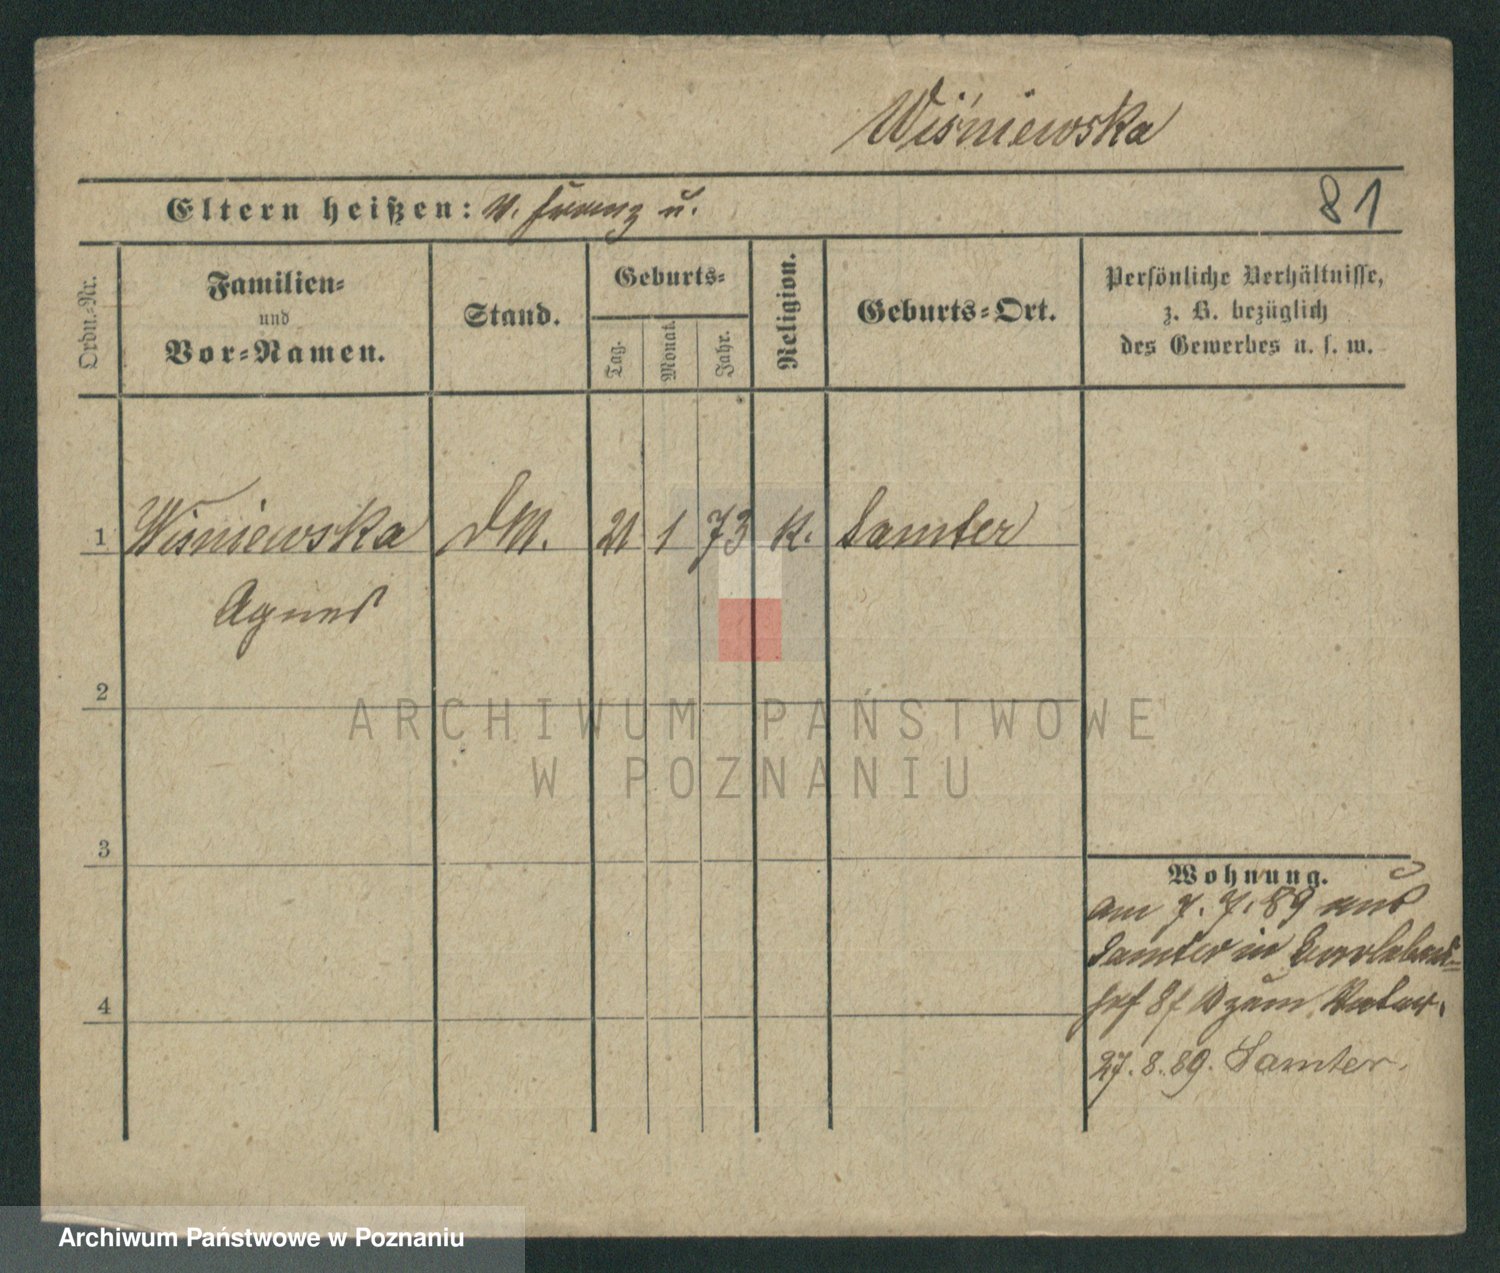 Wiśniewska
Eltern heißen: V. Franz u.
81
Ordn.-Nr.
Familien-
und
Vor-Namen.
Stand.
Geburts-
Tag.
Monat.
Jahr.
Religion.
Geburts-Ort.
Persönliche Verhältnisse,
z. B. bezüglich
des Gewerbes u. s. w.
1 Wisniewska DM. 21 1 73 K. Samter
Agnes
2
3
4
Wohnung.
am 7. 7. 89 aus
Samter in
zum Vater.
27. 8. 89. Samter.
ARCHIWUM PAŃSTWOWE
W POZNANIU
Archiwum Państwowe w Poznaniu